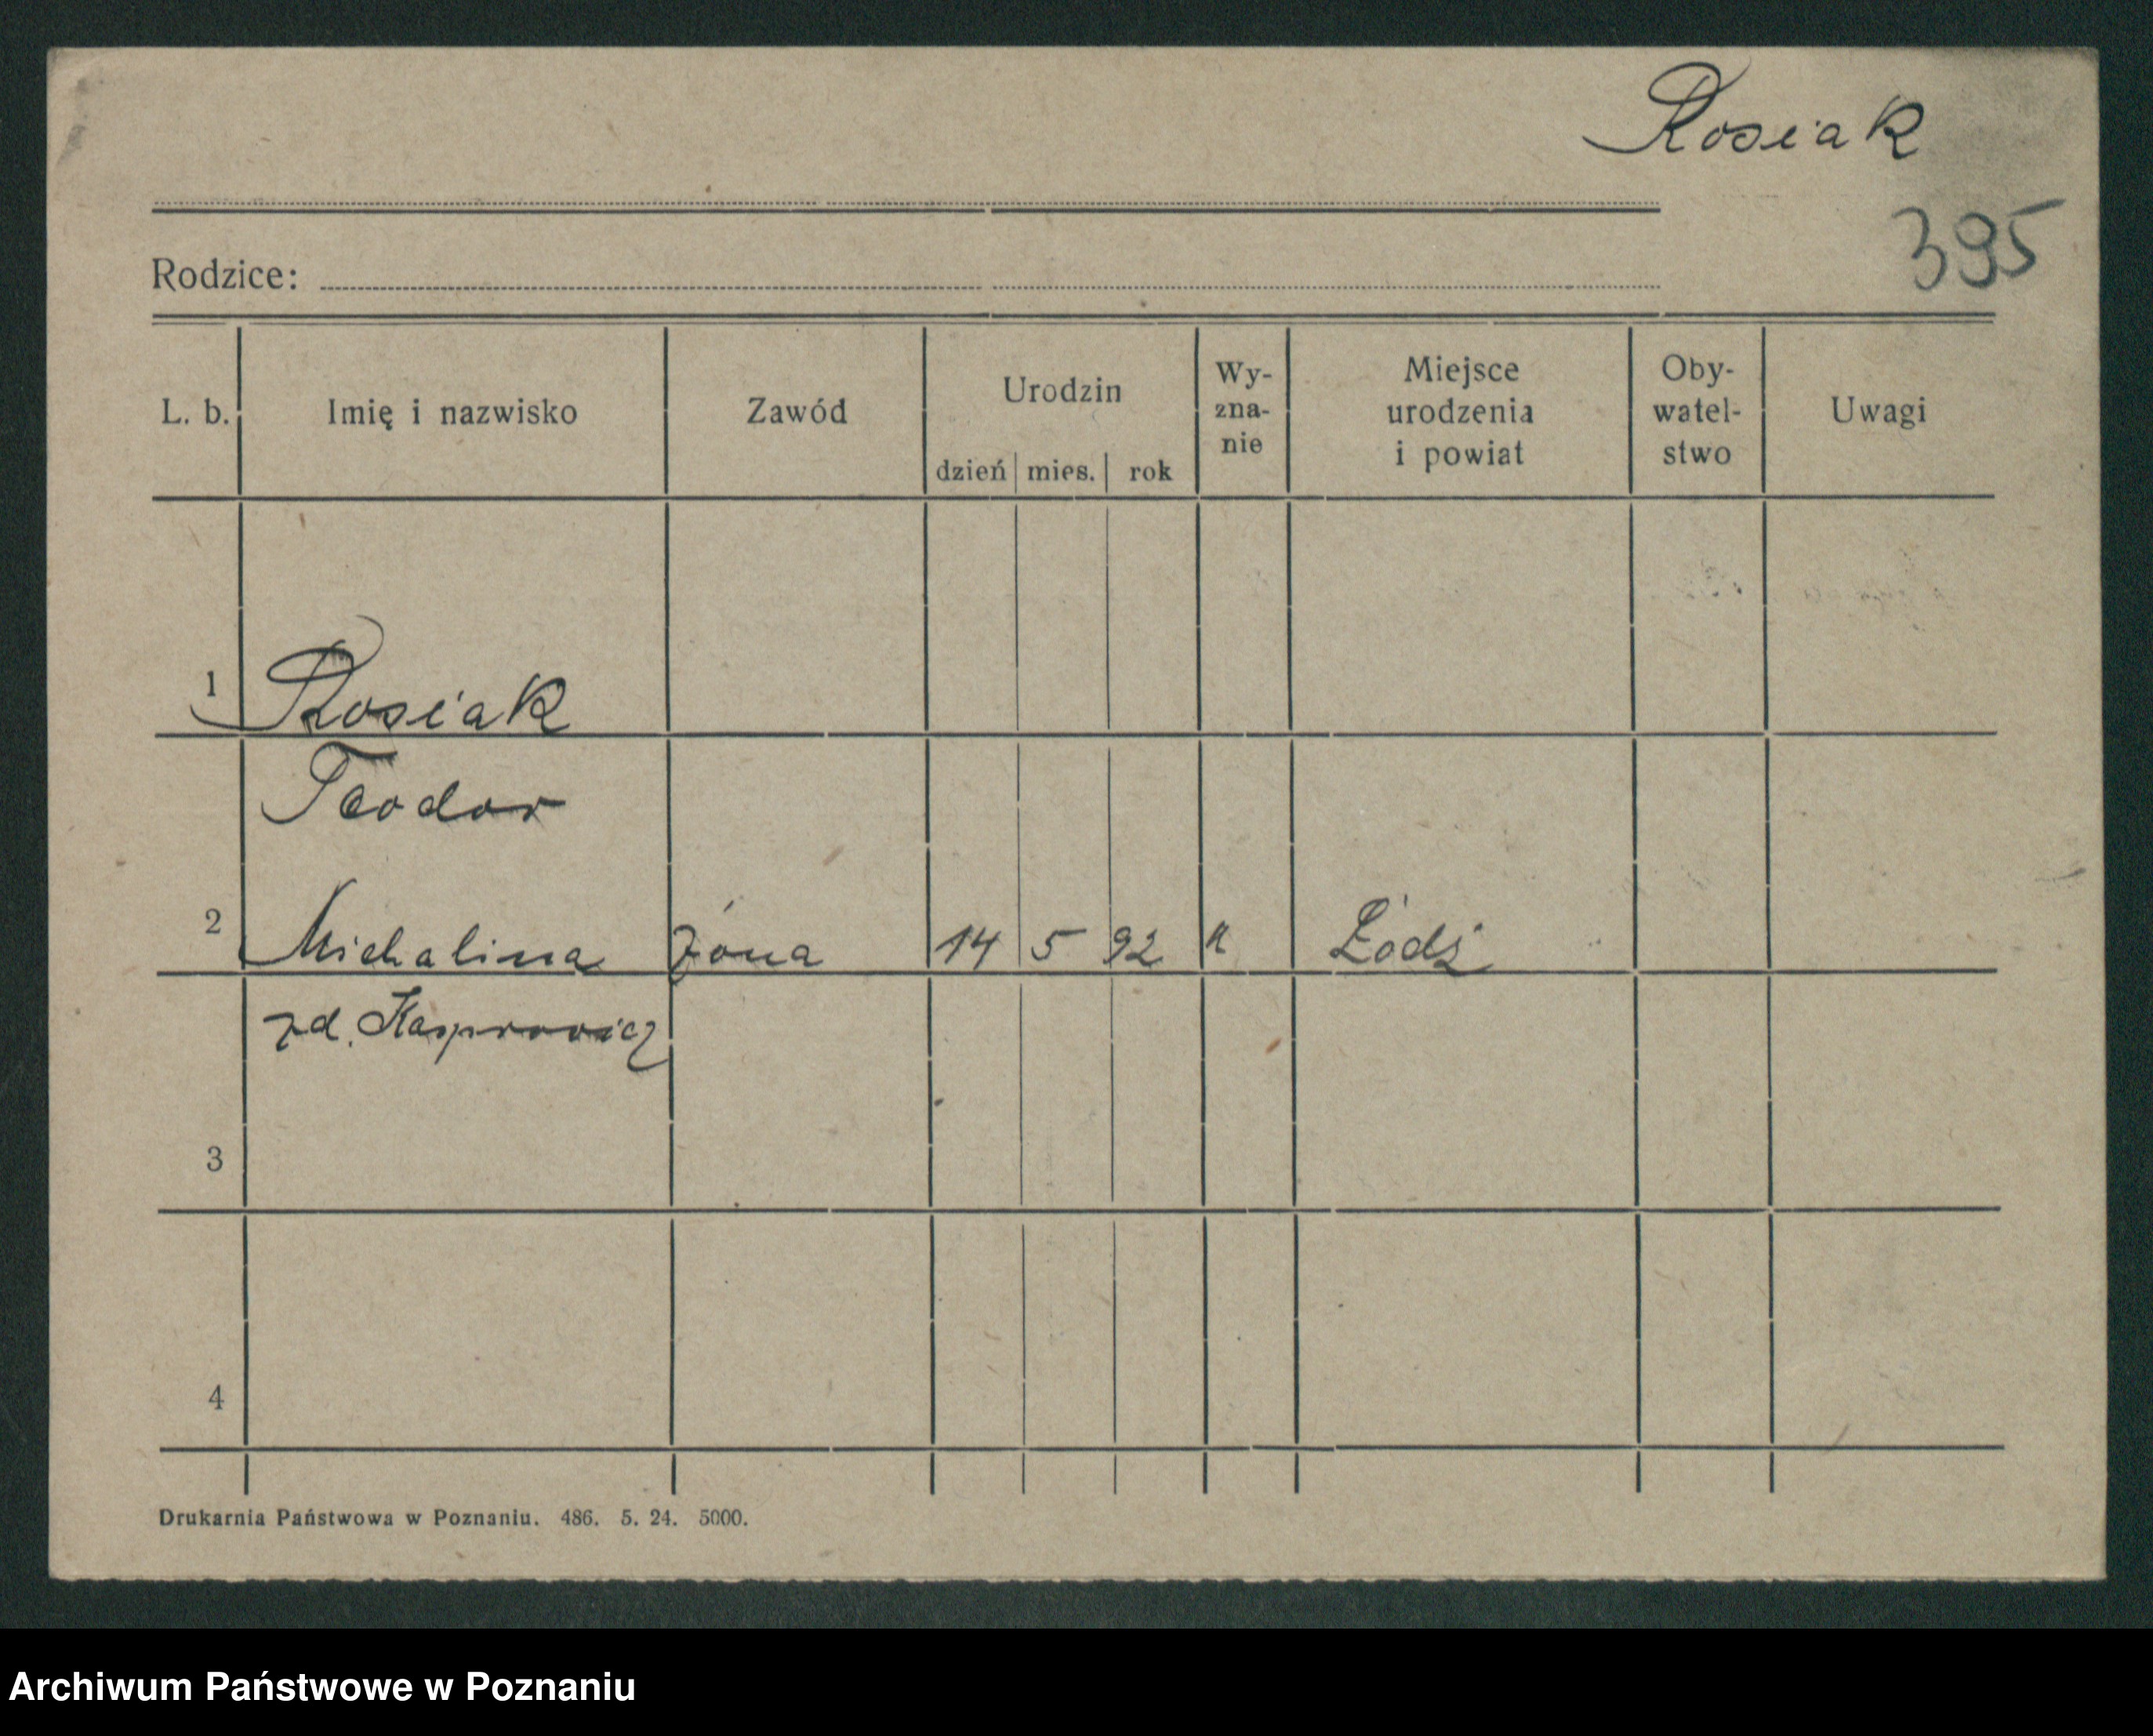 Rosiak
395
Rodzice:
L. b. Imię i nazwisko Zawód Urodzin dzień mies. rok Wy-zna-nie Miejsce urodzenia i powiat Oby-watel-stwo Uwagi
1 Rosiak
Teodor
2 Michalina żona 14 5 92 k Łódź
zd. Kasprowicz
3
4
Drukarnia Państwowa w Poznaniu. 486. 5. 24. 5000.
Archiwum Państwowe w Poznaniu